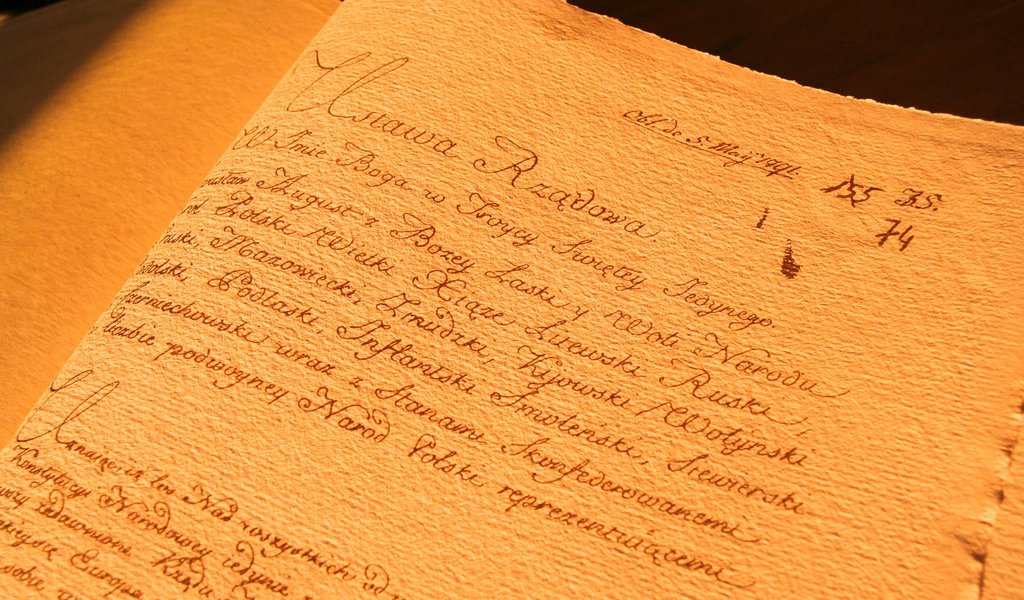 Obl. de 5. Maij 1791.
155 ZS.
74
Ustawa Rządowa.
W Imie Boga w Troycy Swiętey Jedynego.
August z Bożey Łaski y Woli Narodu
Polski, Wielki Xiąże Litewski, Ruski,
Pruski, Mazowiecki, Zmudzki, Kijowski, Wołyński
Podolski, Podlaski, Inflantski, Smoleński, Siewierski
Czerniechowski, wraz z Stanami Skonfederowanemi
Liczbie podwoyney Naród Polski reprezentuiącemi
Uznaiąc, iż los Nas wszystkich od
Konstytucyi Narodowey iedynie
zadawnione Rządu
Europa